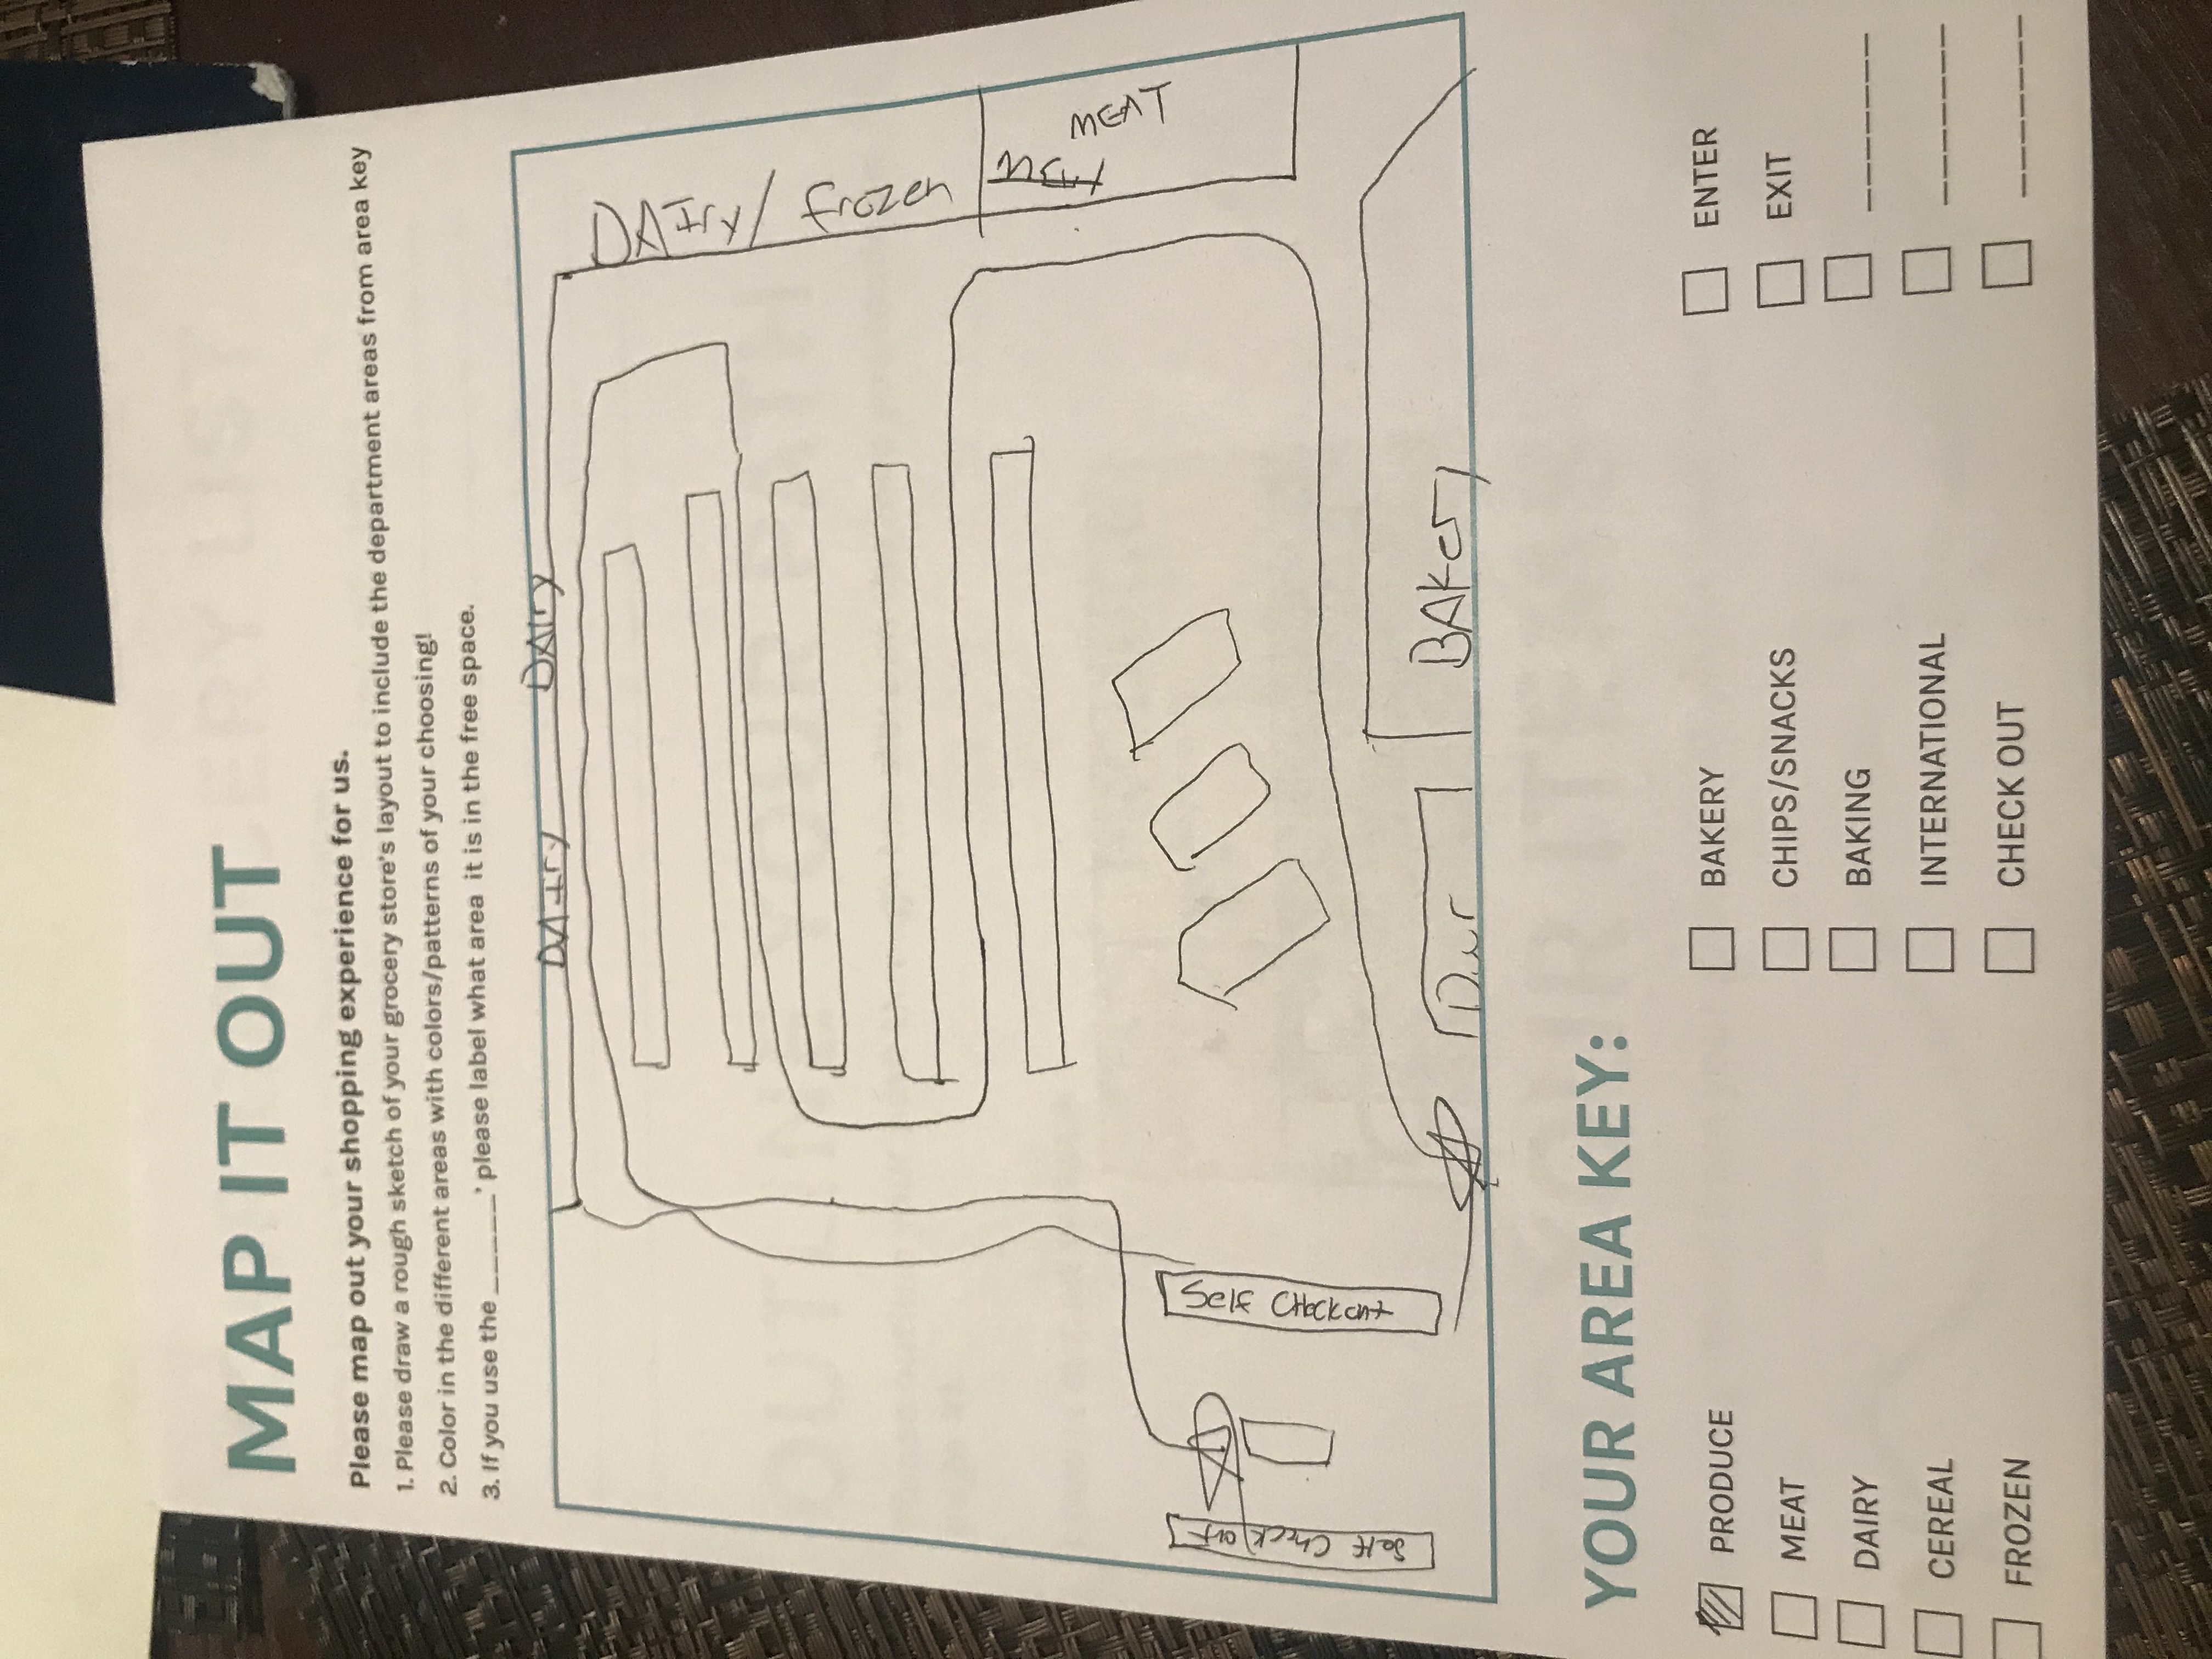 MAP IT OUT
Please map out your shopping experience for us.
1. Please draw a rough sketch of your grocery store's layout to include the department areas from area key
2. Color in the different areas with colors/patterns of your choosing!
3. If you use the _____' please label what area it is in the free space.
DAIry DAIry
DAIry/frozen
MEAT
Self Check out
Self CHeckout
BAKery
YOUR AREA KEY:
PRODUCE
MEAT
DAIRY
CEREAL
FROZEN
BAKERY
CHIPS/SNACKS
BAKING
INTERNATIONAL
CHECK OUT
ENTER
EXIT
_______
_______
_______